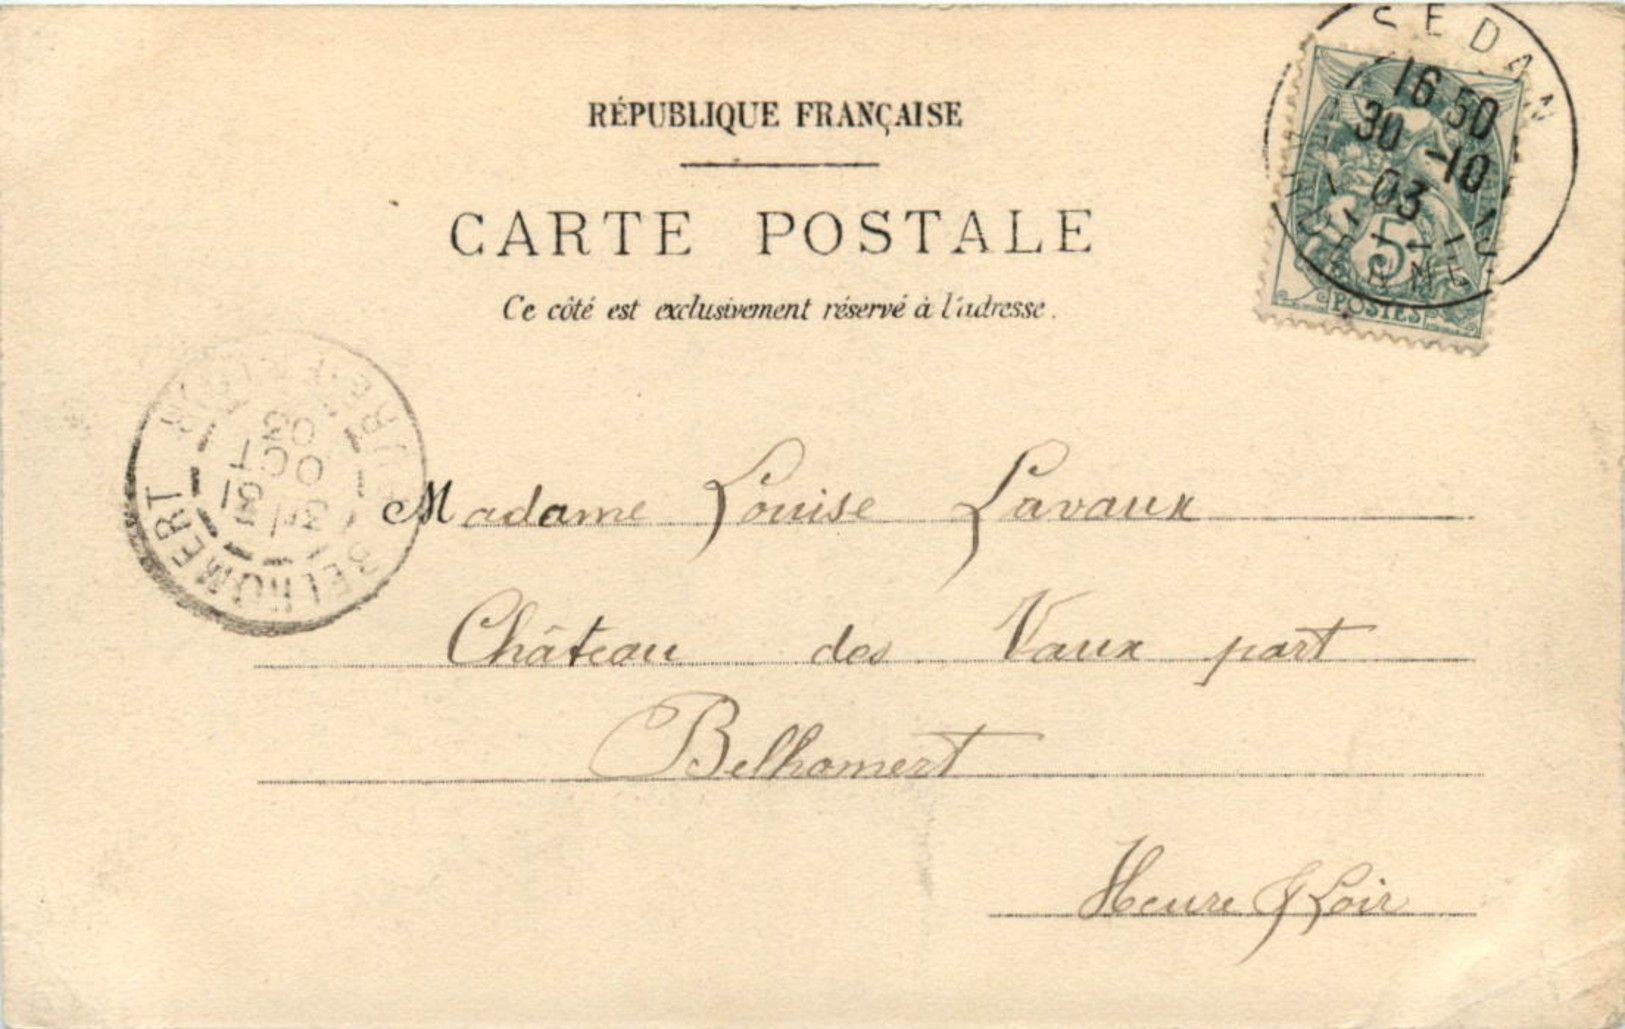 RÉPUBLIQUE FRANÇAISE
CARTE POSTALE
Ce côté est exclusivement réservé à l'adresse.
SEDAN
16 50
30 -10
03
5
POSTES
BELHOMERT
31
OCT
03
Madame Louise Lavaux
Château des Vaux part
Belhomert
Heure & Loir